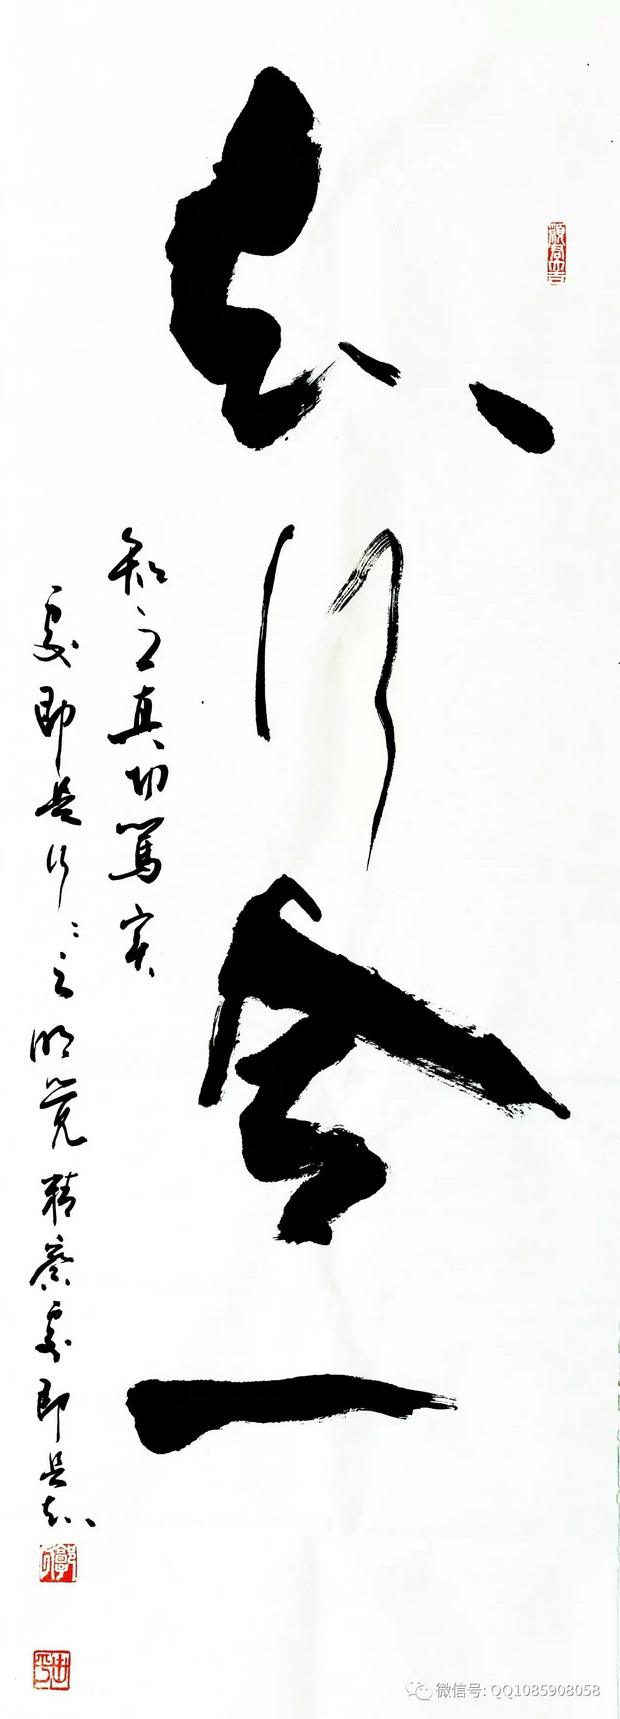 知行合一
知之真切篤实
處即是行行之明覺精察處即是知
微信号: QQ1085908058